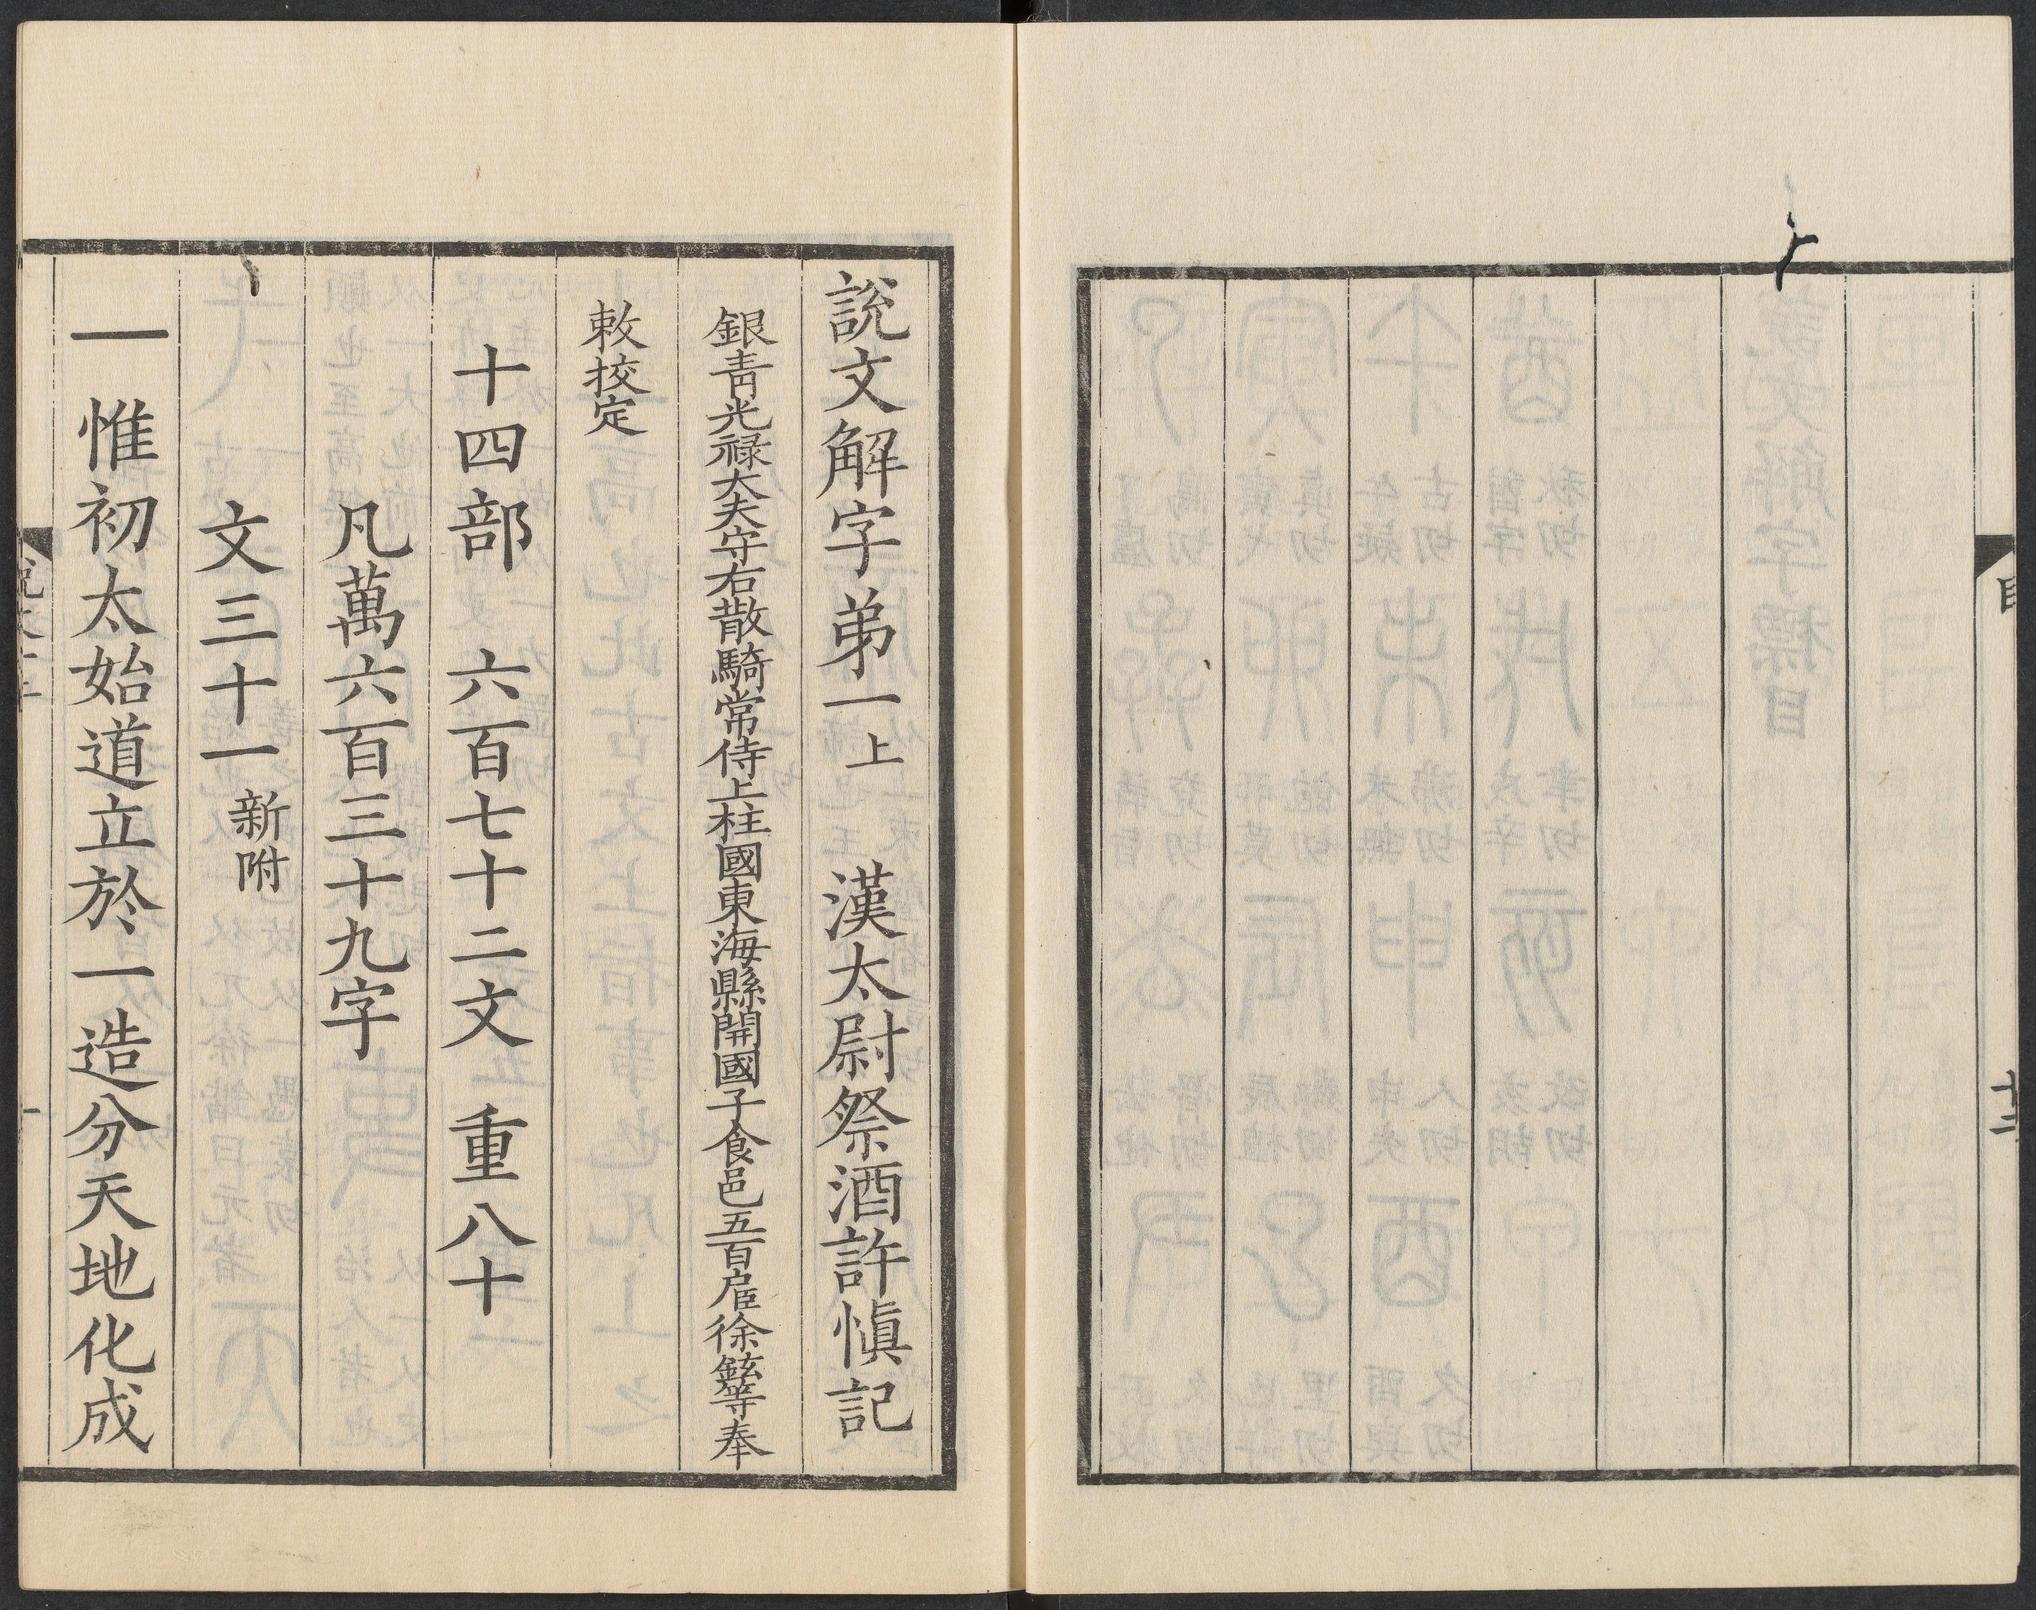 目
十二
說文解字弟一上　漢太尉祭酒許愼記
銀青光祿大夫守右散騎常侍上柱國東海縣開國子食邑五百戶臣徐鉉等奉
敕挍定
十四部　六百七十二文　重八十
凡萬六百三十九字
文三十一新附
一　惟初太始道立於一造分天地化成